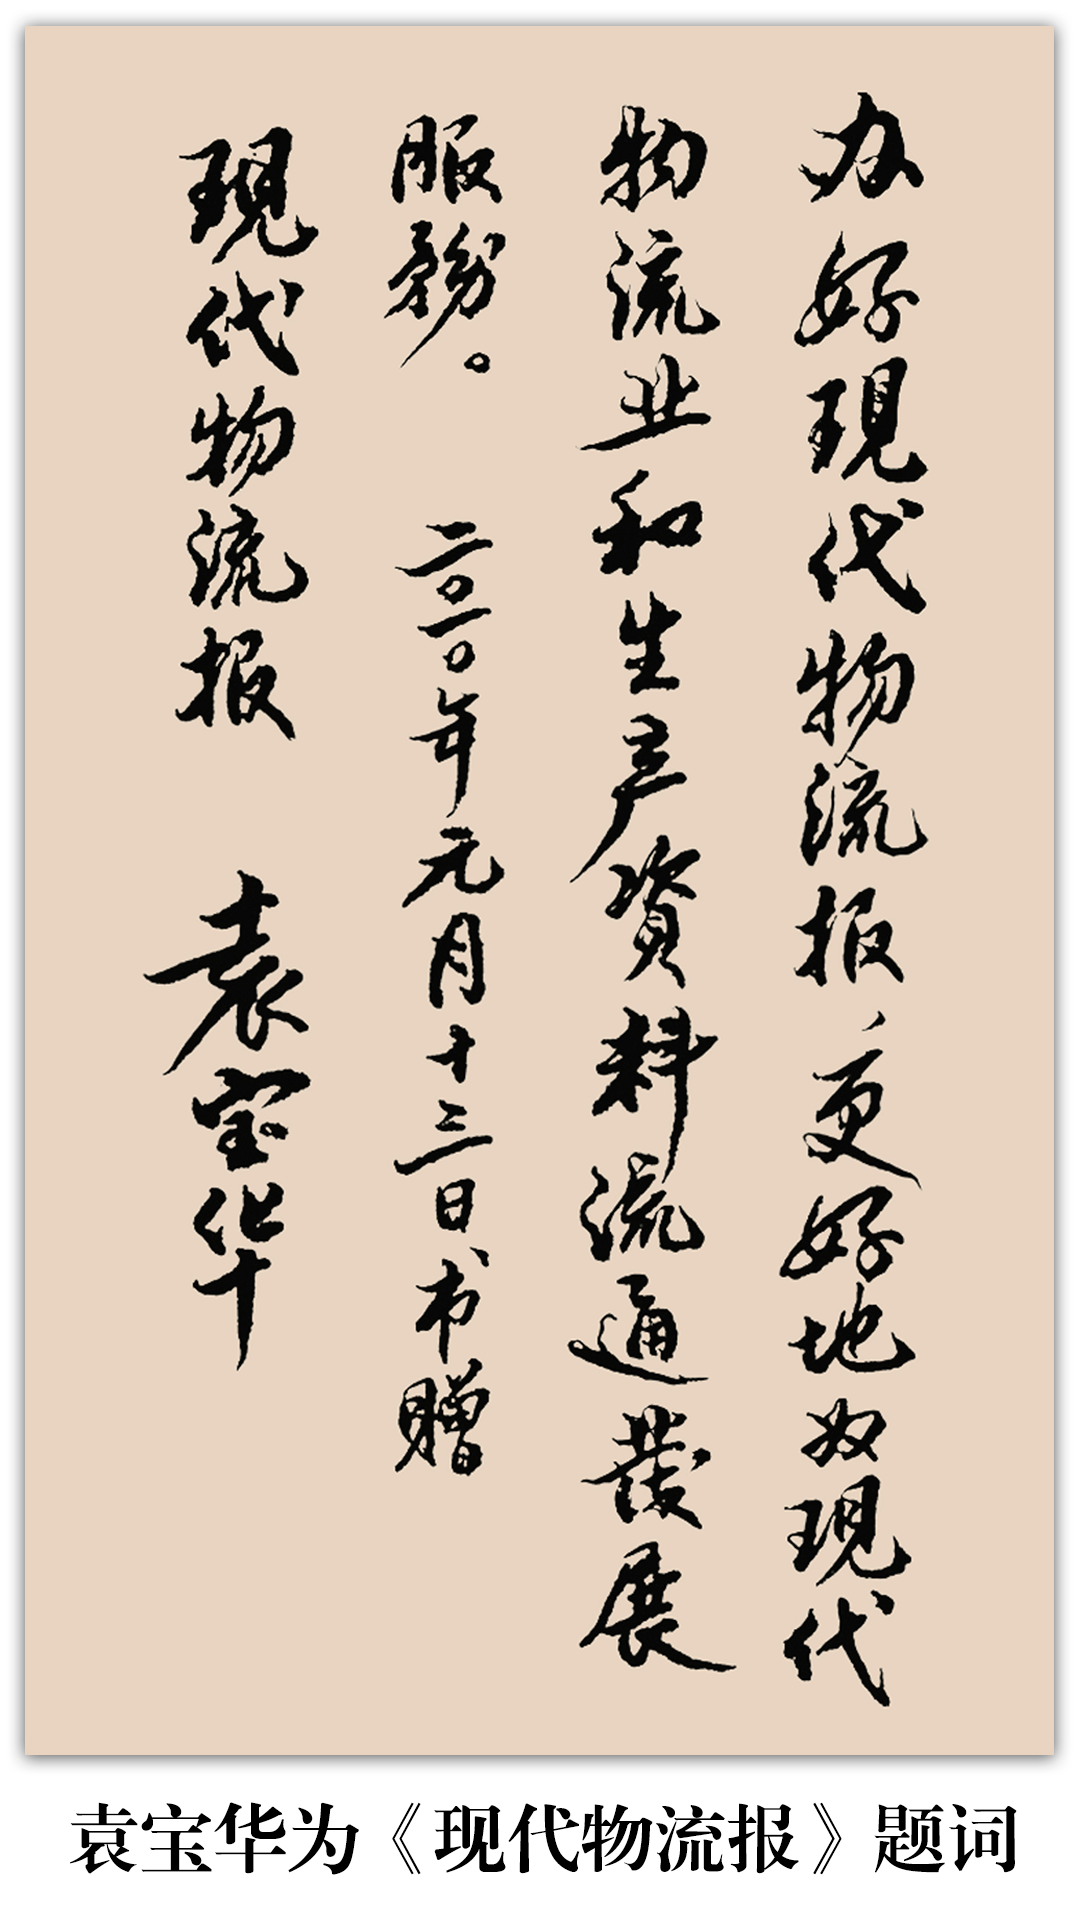 办好現代物流报、更好地为現代
物流业和生产資料流通發展
服務。 二〇一〇年元月十三日书赠
現代物流报 袁宝华
袁宝华为《现代物流报》题词